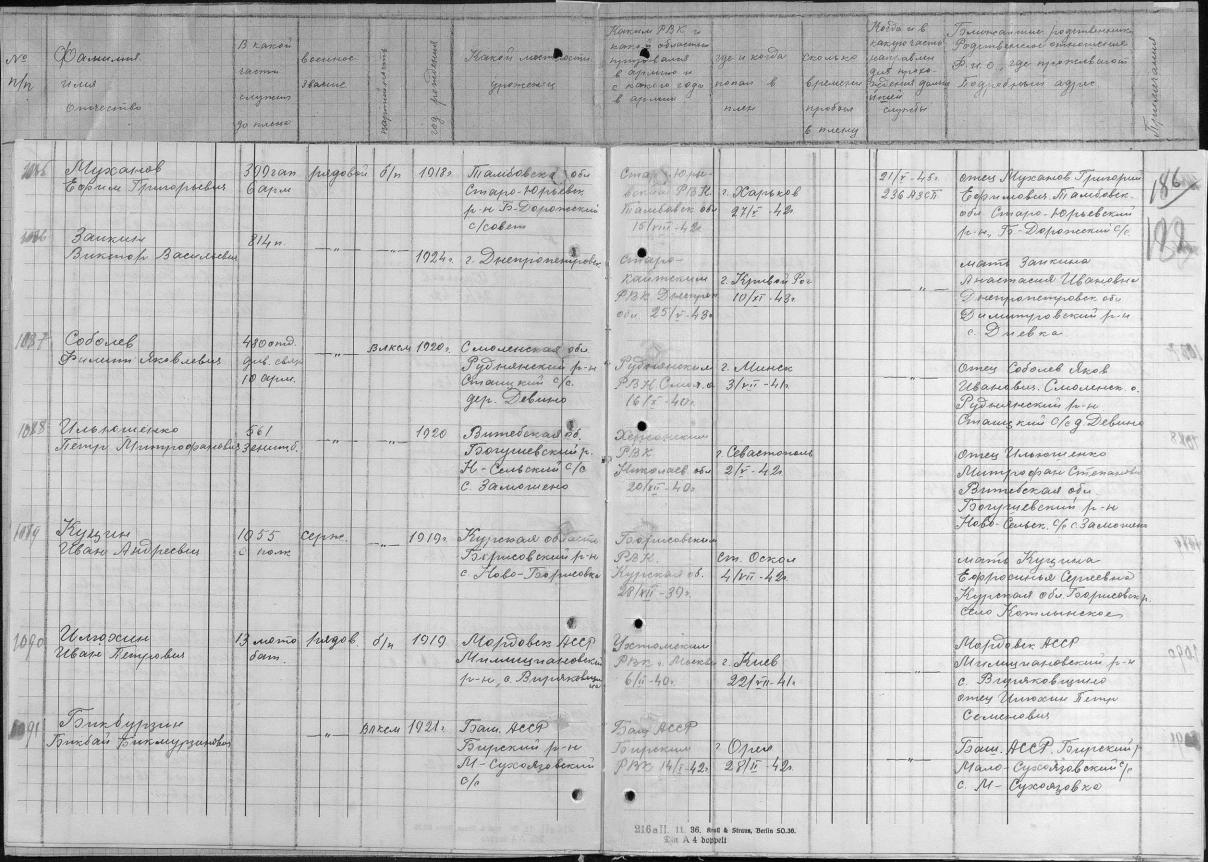 № п/п
Фамилия имя отчество
В какой части служил до плена
военное звание
партийность
год рождения
Какой местности уроженец
Каким РВК и какой области призвался в армию и с какого года в армии
где и когда попал в плен
сколько времени пробыл в плену
Когда и в какую часть направлен для прохождения дальнейшей службы
Ближайшие родственники
Родственное отношение
Ф.И.О., где проживают
Подробный адрес
Примечания
Муханов
Ефим Григорьевич
399 гап
6 арм
рядовой
б/п
1918г
Тамбовска обл
Старо-Юрьевск
р-н Б-Дорожский
с/совет
Старо-Юрь-
евский РВК
Тамбовск обл
15/VIII-42г
г. Харьков
27/V-42г
21/V-45г.
236 АЗСП
отец Муханов Григорий
Ефимович. Тамбовск.
обл. Старо-Юрьевский
р-н, Б-Дорожский с/с
186
1086
Заикин
Виктор Васильевич
814 п.
— „ —
— „ —
1924г.
г. Днепропетровск
Старо-
РВК Днепроп
обл. 25/X-43г
г. Кривой Рог
10/XI-43г.
— „ —
мать Заикина
Анастасия Ивановна
Днепропетровск обл
р-н
с. Диевка
1087
Соболев
Филипп Яковлевич
480 отд.
див. связ
10 арм.
— „ —
ВЛКСМ
1920г.
Смоленская обл
Руднянский р-н
Стаицкий с/с.
дер. Девино
Руднянским
РВК Смол. о
16/X-40г.
г. Минск
3/VII-41г.
— „ —
отец Соболев Яков
Иванович. Смоленск. о.
Руднянский р-н
Стаицкий с/с д Девино
1088
Ильюшенко
Петр Митрофанович
561
зенитб.
— „ —
— „ —
1920
Витебская об.
Богушевский р.
Н-Сельский с/с
с. Замошено
Херсонским
РВК
Николаев обл
20/VII-40г.
г. Севастополь
2/V-42г
— „ —
отец Ильюшенко
Митрофан Степанови
Витевская обл.
Богушевский р-н
Ново-Сельск. с/с с Замошено
1089
Кущин
Иван Андреевич
1055
с полк
серж.
— „ —
1919г.
Курская область
Борисовский р-н
с Ново-Борисовка
Борисовским
РВК.
Курская об.
28/VII-39г.
ст. Оскол
4/VII-42г.
— „ —
мать Кущина
Ефросинья Сергеевна
Курская обл. Борисовск р.
село Котлынское
1090
Илюхин
Иван Петрович
13 мото
бат.
рядов.
б/п
1919
Мордовск АССР
р-н, с.
Ухтомским
РВК г. Москвы
6/II-40г.
г. Киев
22/VII-41г.
— „ —
Мордовск АССР
р-н
с.
отец Илюхин Петр
Семенович
1091
Бикбурзин
Бикбай Бикмурзинович
— „ —
ВЛКСМ
1921г.
Баш. АССР
Бирский р-н
М-Сухоязовский
с/с
Баш АССР
Бирским
РВК 14/I-42г.
г Орел
28/II-42г.
— „ —
Баш. АССР. Бирский р
Мало-Сухоязовский с/с
с. М-Сухоязовка
216aII. 11. 36. Kroll & Straus, Berlin SO.36.
Din A 4 doppelt